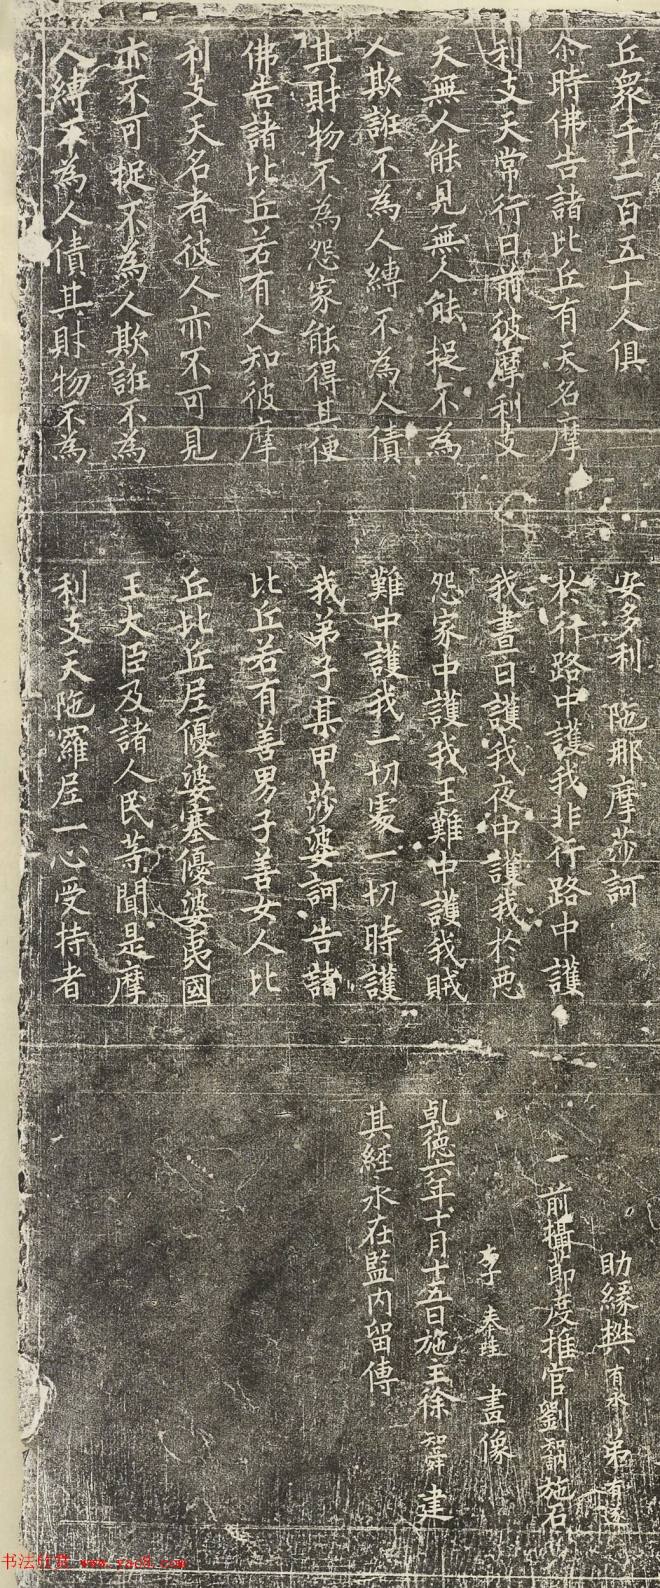 丘衆千二百五十人俱
尒時佛告諸比丘有天名摩
利支天常行日前彼摩利支
天無人能見無人能捉不為
人欺誑不為人縛不為人債
其財物不為怨家能得其便
佛告諸比丘若有人知彼摩
利支天名者彼人亦不可見
亦不可捉不為人欺誑不為
人縛不為人債其財物不為
安多利 陁那摩莎訶
於行路中護我非行路中護
我晝日護我夜中護我於惡
怨家中護我王難中護我賊
難中護我一切處一切時護
我弟子某甲莎婆訶告諸
比丘若有善男子善女人比
丘比丘尼優婆塞優婆夷國
王大臣及諸人民等聞是摩
利支天陁羅尼一心受持者
助緣樊有永弟有遂
一前攝節度推官劉 施石
李奉珪 畫像
乹德六年十月十五日施主徐智舜 建
其經永在監內留傳